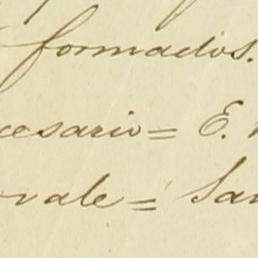 formados.
cesario = E.
vale = San